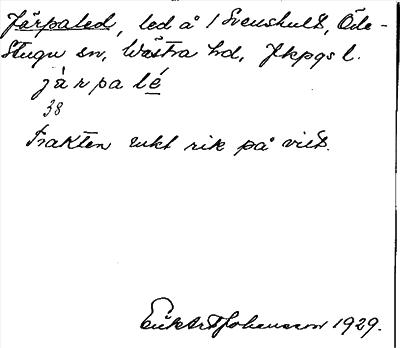 Järpaled, led å / Svenshult, Öde-
Stugu sn, Wästra hd, Jkpgs l.
jä r pa lé
38
Trakten rukt rik på vilt.
Johansson 1929.